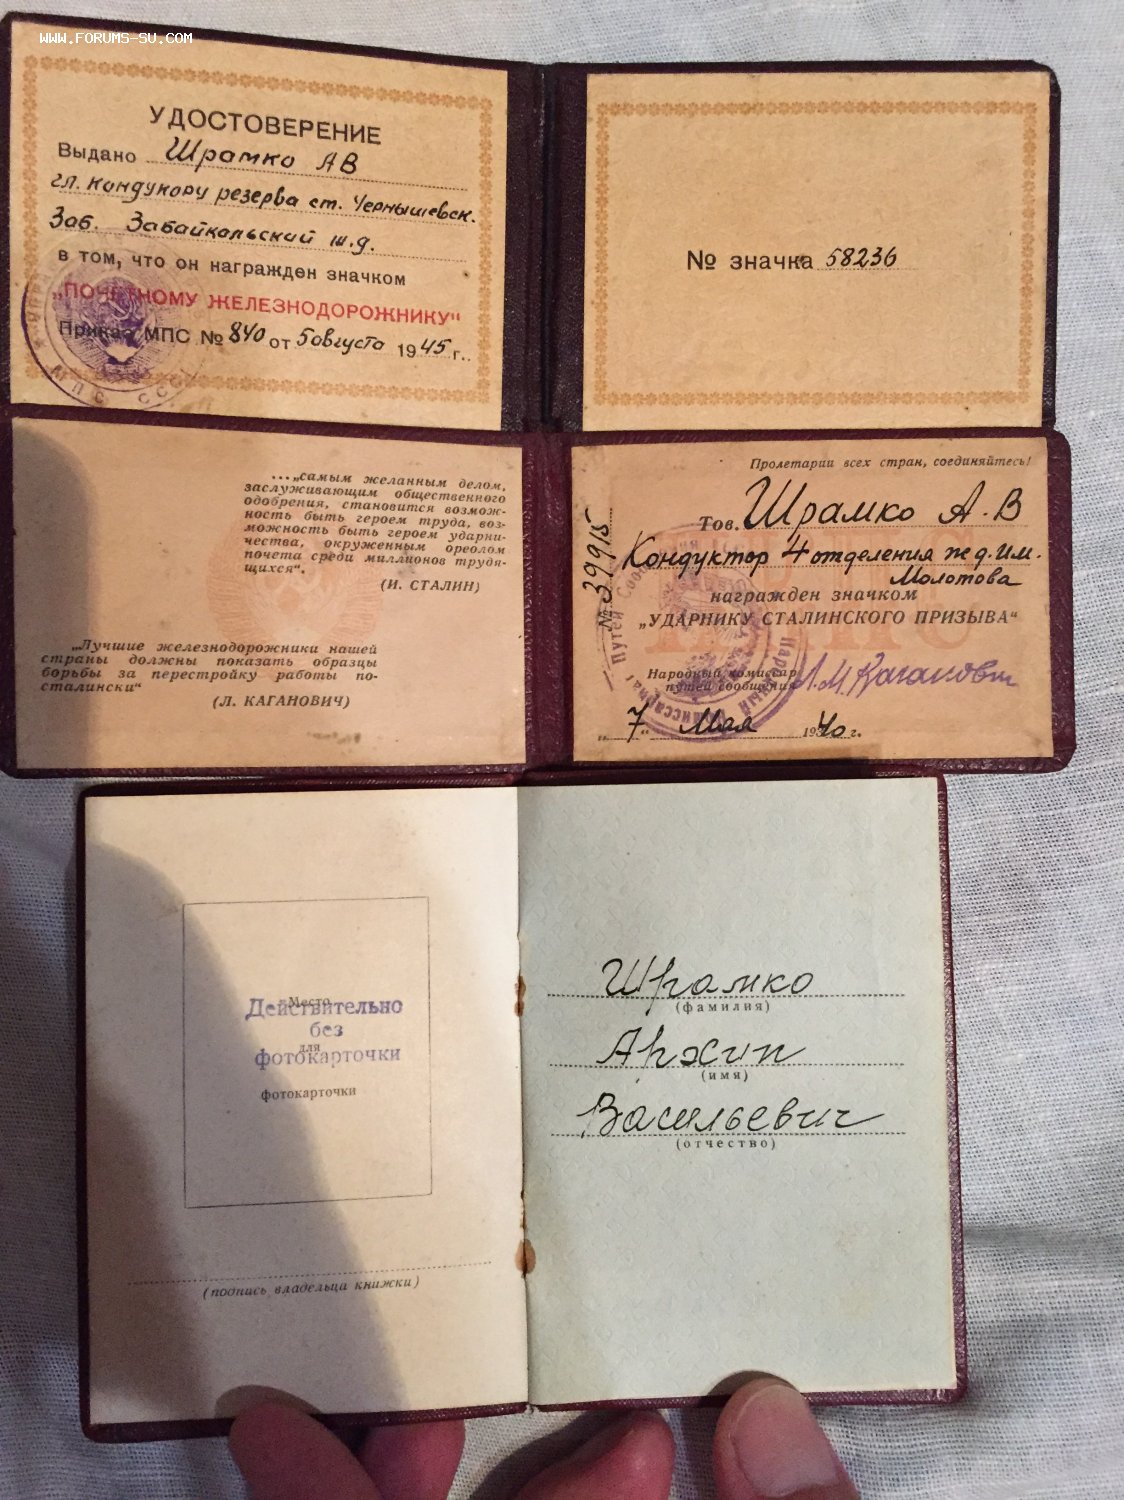 WWW.FORUMS-SU.COM
УДОСТОВЕРЕНИЕ
Выдано Шрамко АВ
гл. кондукору резерва ст. Чернышевск.
Заб. Забайкальский ж.д.
в том, что он награжден значком
„ПОЧЕТНОМУ ЖЕЛЕЗНОДОРОЖНИКУ“
Приказ МПС № 840 от 5 августа 1945 г.
МПС СССР
№ значка 58236
...„самым желанным делом,
заслуживающим общественного
одобрения, становится возмож-
ность быть героем труда, воз-
можность быть героем ударни-
чества, окруженным ореолом
почета среди миллионов трудя-
щихся“.
(И. СТАЛИН)
„Лучшие железнодорожники нашей
страны должны показать образцы
борьбы за перестройку работы по-
сталински“
(Л. КАГАНОВИЧ)
Пролетарии всех стран, соединяйтесь!
№ 39915
Тов. Шрамко А.В
Кондуктор 4 отделения ж д. им.
Молотова
награжден значком
„УДАРНИКУ СТАЛИНСКОГО ПРИЗЫВА“
Народный комиссар
путей сообщения Л.М.Каганович
„7“ Мая 1940 г.
Место
для
фотокарточки
Действительно
без
фотокарточки
(подпись владельца книжки)
Шрамко
(фамилия)
Архип
(имя)
Васильевич
(отчество)